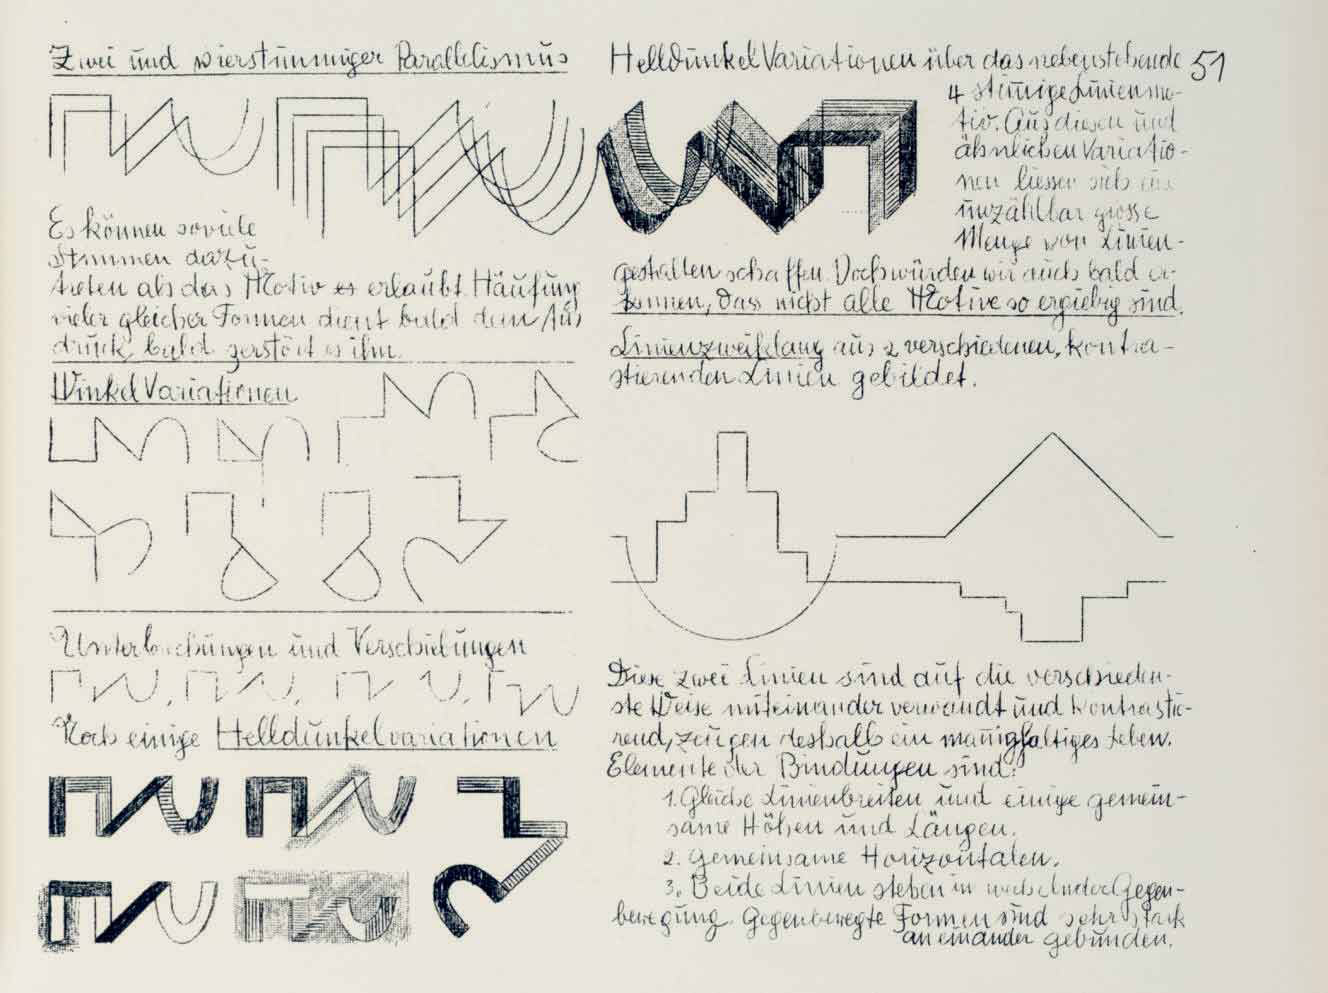 Zwei und vierstimmiger Parallelismus
Es können soviele
Stimmen dazu-
treten als das Motiv es erlaubt. Häufung
vieler gleicher Formen dient bald dem Aus
druck, bald zerstört es ihn.
Winkel Variationen
Unterbrechungen und Verschiebungen
Noch einige Helldunkelvariationen
Helldunkel Variationen über das nebenstehende 51
4 stimige Linienmo-
tiv. Aus diesen und
ähnlichen Variatio-
nen liessen sich eine
unzählbar grosse
Menge von Linien-
gestalten schaffen. Doch würden wir auch bald er-
kennen, dass nicht alle Motive so ergiebig sind.
Linienzweiklang aus 2 verschiedenen, kontra-
stierenden Linien gebildet.
Diese zwei Linien sind auf die verschieden-
ste Weise miteinander verwandt und kontrastie-
rend, zeugen deshalb ein manigfaltiges Leben.
Elemente der Bindungen sind:
1. Gleiche Linienbreiten und einige gemein-
same Höhen und Längen.
2. Gemeinsame Horizontalen.
3. Beide Linien stehen in wechselnder Gegen-
bewegung. Gegenbewegte Formen sind sehr stark
aneinander gebunden.